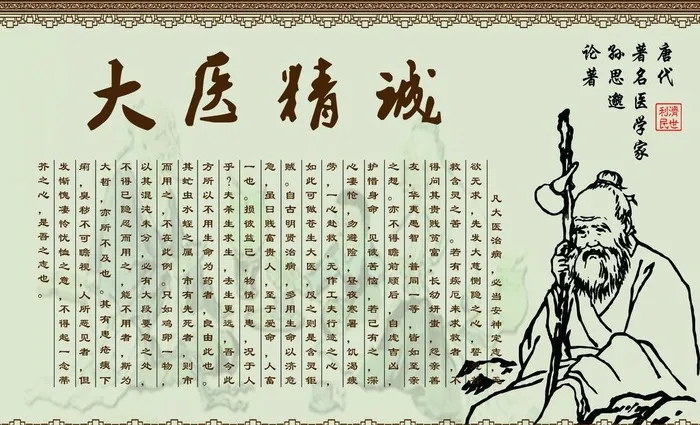 大医精诚
唐代
著名医学家
孙思邈
论著
濟世
利民
凡大医治病，必当安神定志，
欲无求，先发大慈恻隐之心，誓
救含灵之苦。若有疾厄来求救者，不
得问其贵贱贫富，长幼妍蚩，怨亲善
友，华夷愚智，普同一等，皆如至亲
之想。亦不得瞻前顾后，自虑吉凶，
护惜身命，见彼苦恼，若己有之，深
心凄怆，勿避险，昼夜寒暑，饥渴疲
劳，一心赴救，无作工夫行迹之心，
如此可做苍生大医，反之则是含灵钜
贼。自古明贤治病，多用生命以济危
急，虽日贱富贵人，至于爱命，人富
一也。损彼益己，物情同患，况于人
乎？夫杀生求生，去生更远。吾今此
方所以不用生命为药者，良由此也。
其虻虫水蛭之属，市有先死者，则市
而用之，不在此例。只如鸡卵一物，
以其混沌未分，必有大段要急之处，
不得已隐忍而用之，能不用者，斯为
大哲，亦所不及也。其有患疮痍下
痢，臭秽不可瞻视，人所恶见者，但
发惭愧凄怜忧恤之意，不得起一念蒂
芥之心，是吾之志也。